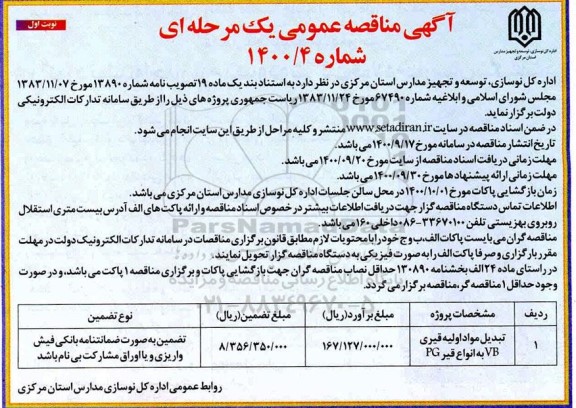 نوبت اول
آگهی مناقصه عمومی یک مرحله ای
شماره ۱۴۰۰/۴
اداره کل نوسازی، توسعه و تجهیز مدارس
استان مرکزی
اداره کل نوسازی، توسعه و تجهیز مدارس استان مرکزی در نظر دارد به استناد بند یک ماده ۱۹ تصویب نامه شماره ۱۳۸۹۰ مورخ ۱۳۸۳/۱۱/۰۷
مجلس شورای اسلامی و ابلاغیه شماره ۶۷۴۹۰ مورخ ۱۳۸۳/۱۱/۲۴ ریاست جمهوری پروژه های ذیل را از طریق سامانه تدارکات الکترونیکی
دولت برگزار نماید.
در ضمن اسناد مناقصه در سایت www.setadiran.ir منتشر و کلیه مراحل از طریق این سایت انجام می شود.
تاریخ انتشار مناقصه در سامانه مورخ ۱۴۰۰/۹/۱۷ می باشد.
مهلت زمانی دریافت اسناد مناقصه از سایت مورخ ۱۴۰۰/۰۹/۲۰ می باشد.
مهلت زمانی ارائه پیشنهادها مورخ ۱۴۰۰/۰۹/۳۰ می باشد.
زمان بازگشایی پاکات مورخ ۱۴۰۰/۱۰/۰۱ در محل سالن جلسات اداره کل نوسازی مدارس استان مرکزی می باشد.
اطلاعات تماس دستگاه مناقصه گزار جهت دریافت اطلاعات بیشتر در خصوص اسناد مناقصه و ارائه پاکت های الف آدرس بیست متری استقلال
روبروی بهزیستی تلفن ۳۳۶۷۰۱۰۰-۰۸۶ داخلی ۱۶۰ می باشد.
مناقصه گران می بایست پاکات الف، ب و ج خود را با محتویات لازم مطابق قانون برگزاری مناقصات در سامانه تدارکات الکترونیک دولت در مهلت
مقرر بارگزاری و صرفا پاکت الف را به صورت فیزیکی به دستگاه مناقصه گزار تحویل نمایند.
در راستای ماده ۲۴ الف بخشنامه ۱۳۰۸۹۰ حداقل نصاب مناقصه گران جهت بازگشایی پاکات و برگزاری مناقصه ۱ پاکت می باشد، و در صورت
وجود حداقل ۱ مناقصه گر، مناقصه برگزار می گردد.
ردیف مشخصات پروژه مبلغ برآورد (ریال) مبلغ تضمین (ریال) نوع تضمین
۱ تبدیل مواد اولیه قیری VB به انواع قیر PG ۱۶۷/۱۲۷/۰۰۰/۰۰۰ ۸/۳۵۶/۳۵۰/۰۰۰ تضمین به صورت ضمانتنامه بانکی فیش واریزی و یا اوراق مشارکت بی نام باشد
روابط عمومی اداره کل نوسازی مدارس استان مرکزی
ParsNamadData
پایگاه اطلاع رسانی مناقصه و مزایده
۰۲۱-۸۸۳۴۹۶۷۰-۵